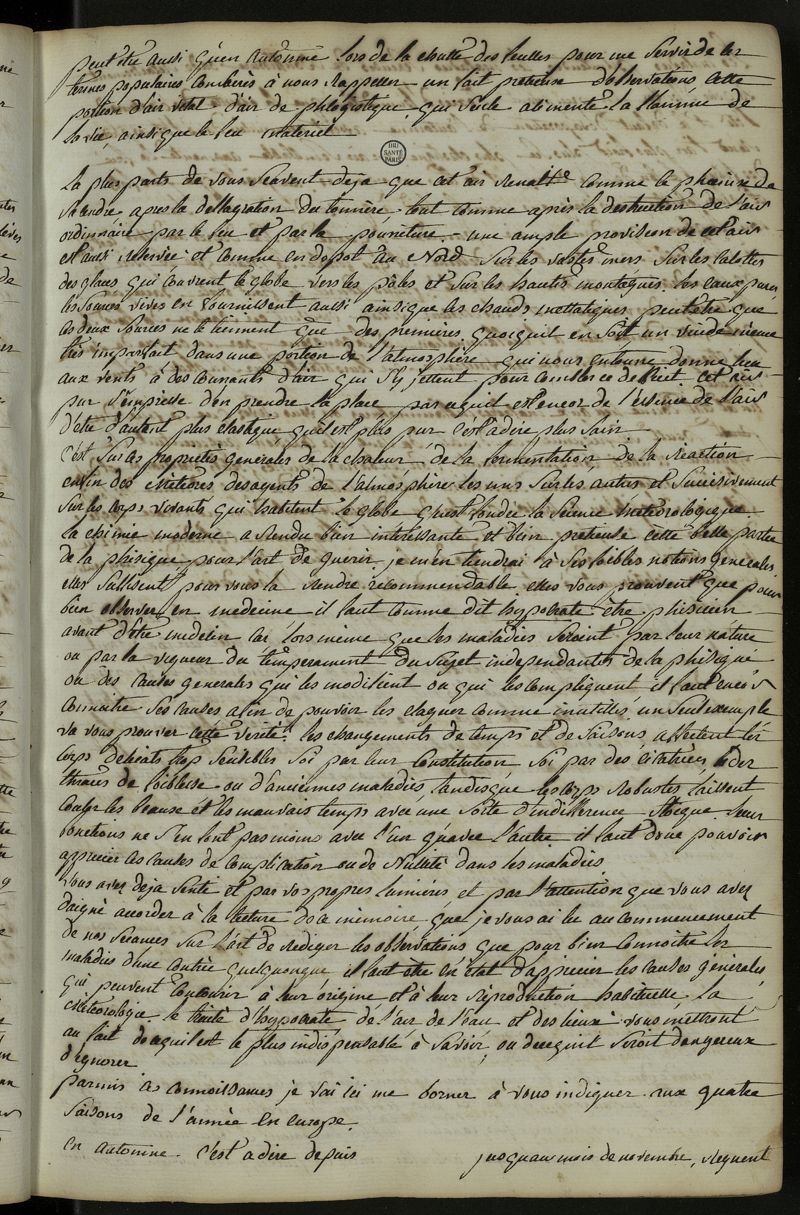 peut être aussi qu'en automne lors de la chutte des feuilles pour me servir de ces
termes populaires consacrés à nous rappeller un fait pretieuse d'observations cette
portion d'air vital d'air dephlogistique, qui seule alimente la flamme de
la vie, ainsi que le feu materiel
DU SANTÉ PARIS
la plus parts de vous scavent deja que cet air renait comme le pheniuse de
sa cendre apres la deflagration du tonnère, tout comme après la destruction de l'air
ordinnaire par le feu et par la pourriture. une ample provision de cet air
est aussi reservée et comme en depot au Nord sur les vastes mers sur les calottes
des glaces qui couvrent le globe vers les poles et sur les hautes montagnes. les eaux pures
les sources vives en fournissent aussi ainsi que les chauds metalliques, peut être que
les deux sources ne le tiennent que des premieres, quoiquil en soit un vuide même
très imparfait dans une portion de l'atmosphère qui nous entoure donne lieu
aux vents à des courants d'air qui s'y jettent pour combler ce deficit. cet air
pur s'empresse d'en prendre la place parcequil est encor de l'essence de l'air
d'etre d'autent plus elastique quil est plus pur c'est a dire plus sain
c'est sur les proprietés generales de la chaleur, de la fermentation de la reaction
enfin des meteores des agents de l'atmosphère les uns sur les autres et successivement
sur les corps vivants qui habitent le globe quest fondée la science metéorologique
la chimie moderne a rendu bien interessante et bien pretieuse cette belle partie
de la phisique pour l'art de guerir. je m'en tiendrai à ses foibles notions generales
elles suffisent pour vous la rendre recommendable elles vous prouvent que pour
bien observer en medecine il faut comme dit hypocrate être phisicien
avant d'être medecin car lors même que les maladies seroint par leur nature
ou par la vigueur du temperament du sujet independantes de la phisique
ou des causes generales qui les modifient ou qui les compliquent il faut encor
connaitre ses causes afin de pouvoir les elaguer comme inutilles. un seul exemple
va vous prouver cette verité. les changements de temps et de saisons affectent les
corps delicats trop sensibles soi par leur constitution soi par des cicatrices
de foiblesse ou d'anciennes maladies tandisque les corps robustes laissent
couler les beause et les mauvais temps avec une sorte d'indifference stoique leur
fonctions ne s'en font pas moins avec l'un qu'avec l'autre il faut donc pouvoir
apprecier les causes de complication ou de nullité dans les maladies
vous avez deja senti et par vos propres lumieres et par l'attention que vous avez
daigné accorder à la lecture d'ce mémoire que je vous ai lu au commencement
de nos seances sur l'art de rediger les observations que pour bien connoitre les
maladies d'une contrée quelquonque il faut être en etat d'apprecier les causes génerales
qui peuvent concourir à leur origine et à leur réproduction habituelle, la
météorologie le traité d'hypocrate de l'air de l'eau et des lieux vous mettront
au fait de cequil est le plus indispensable à savoir, ou de cequil seroit dangereux
d'ignorer
parmis ces connoissances je vai ici me borner à vous indiquer aux quatre
saisons de l'année en europe.
en automne. c'est a dire depuis jusquaux mois de novembre, regnent